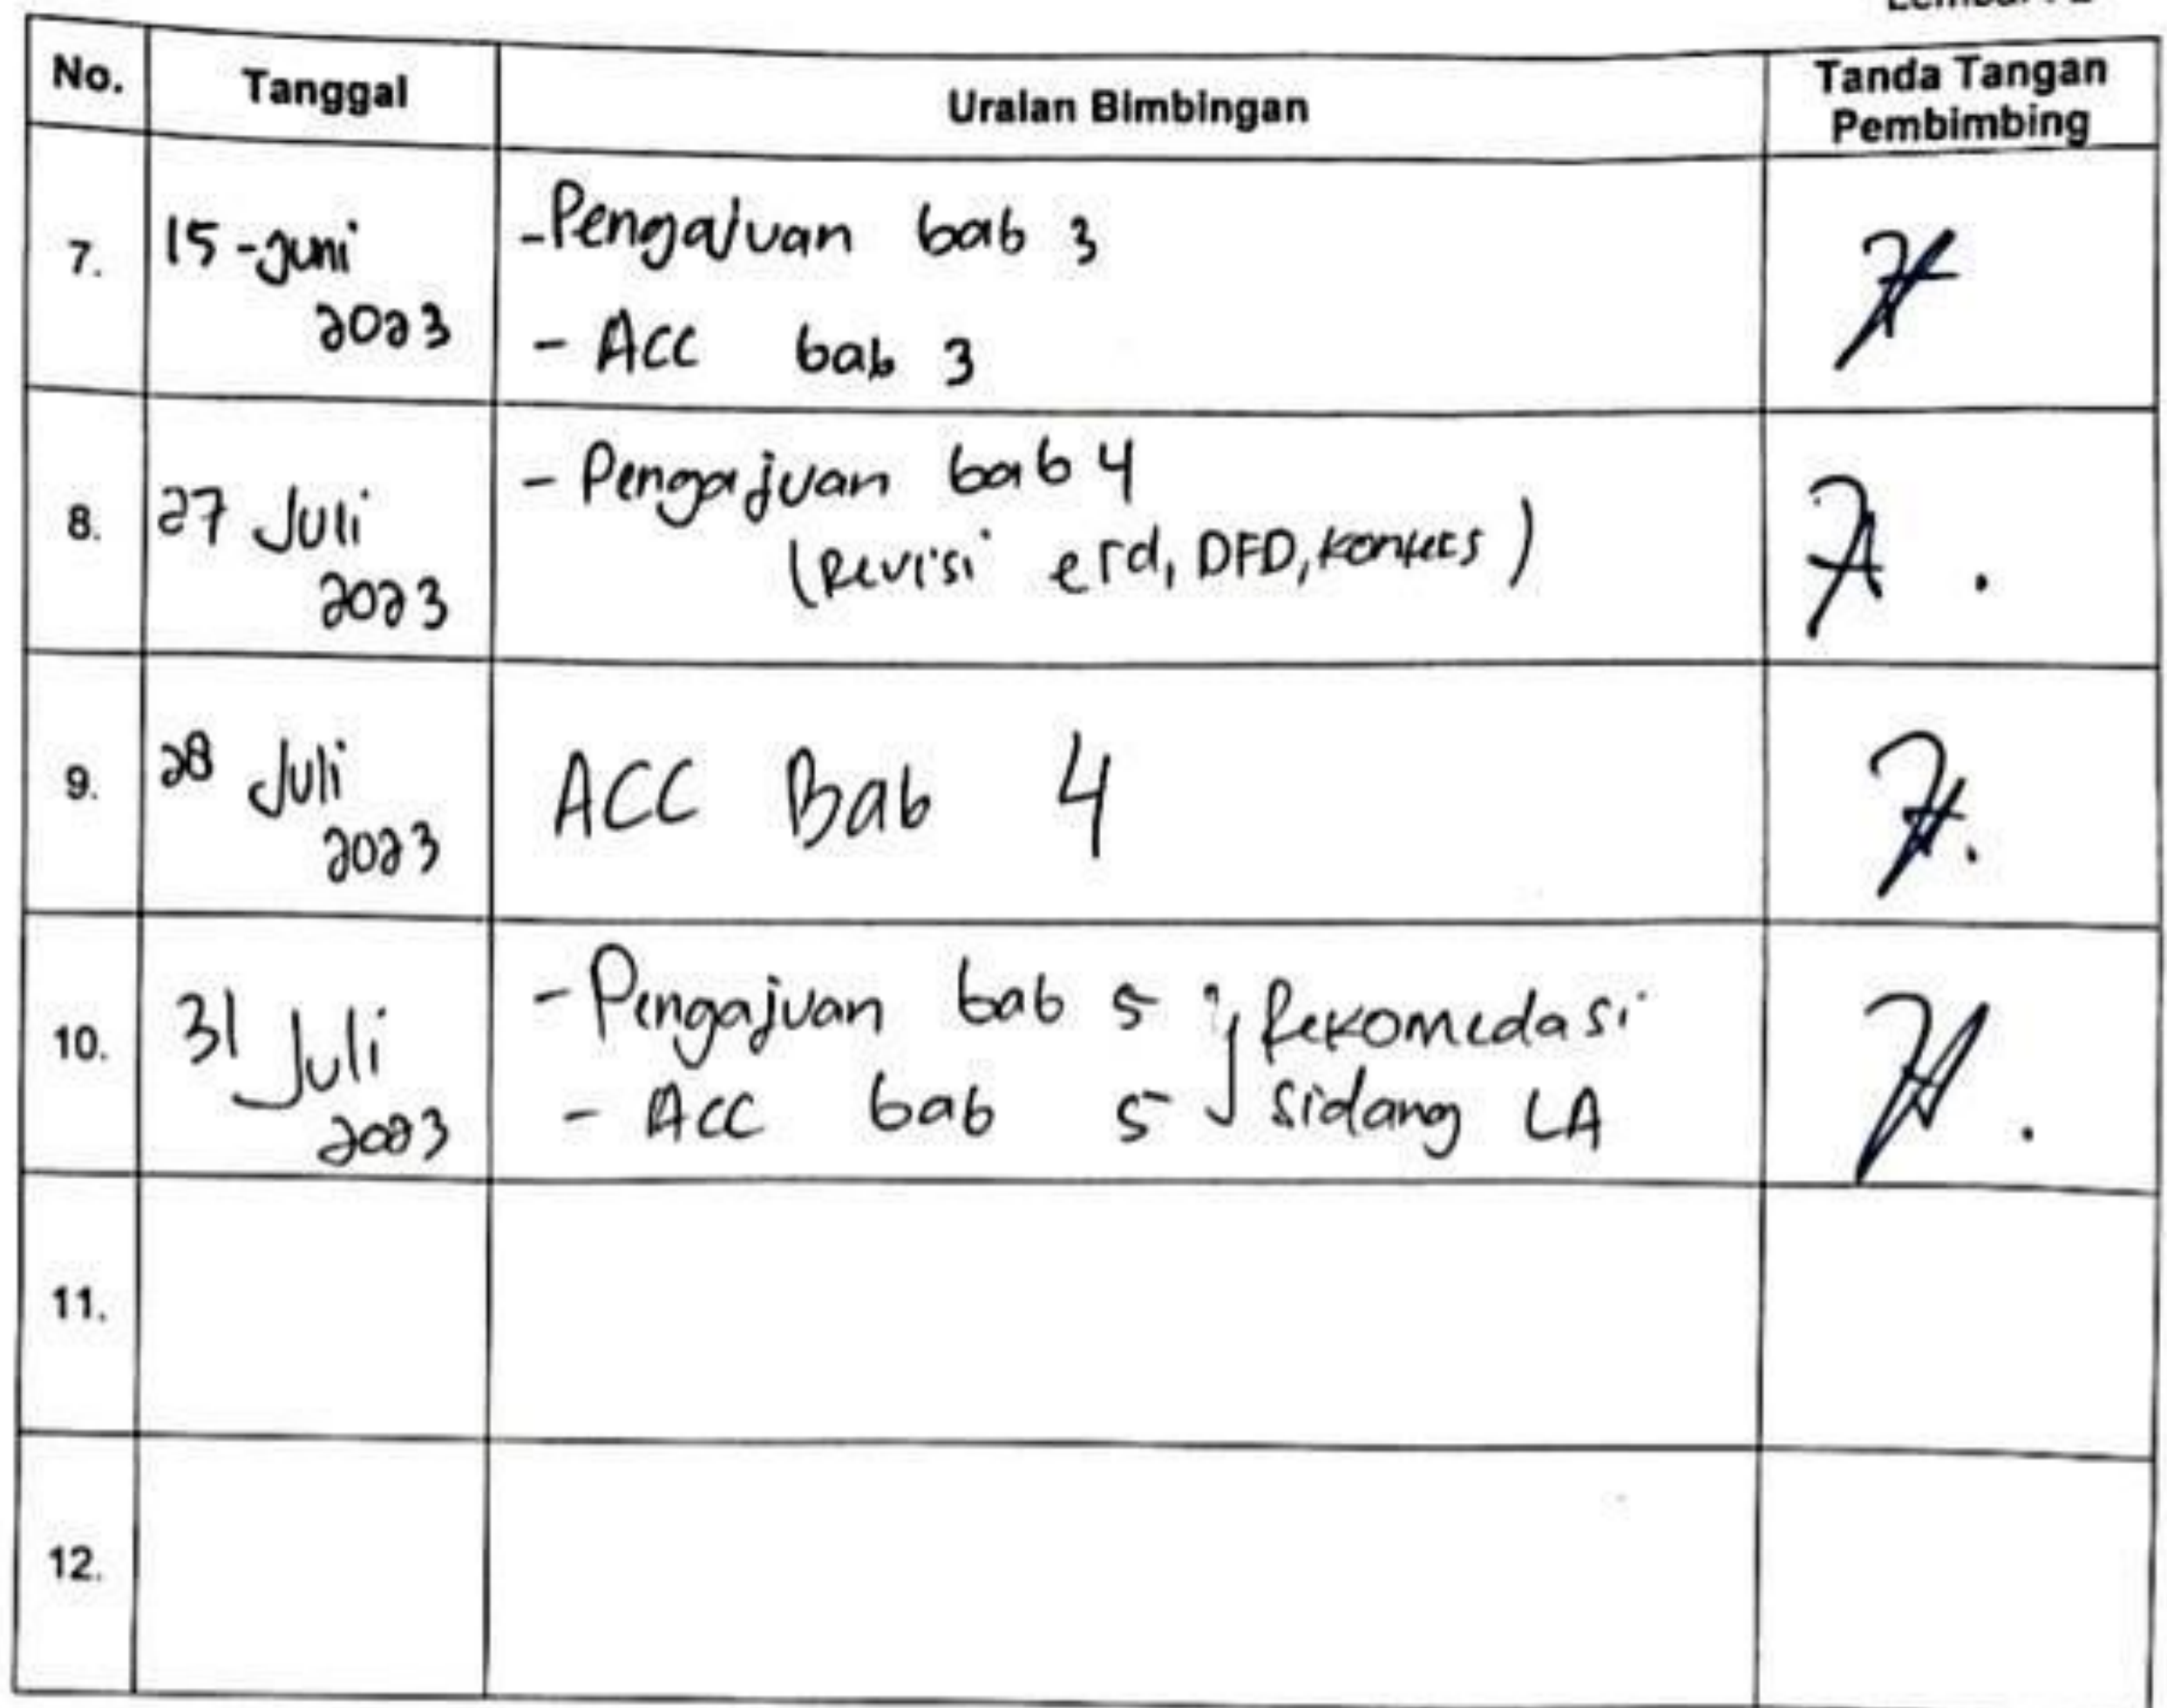 No. Tanggal Uraian Bimbingan Tanda Tangan Pembimbing
7. 15-juni 2023
-Pengajuan bab 3
- ACC bab 3
8. 27 Juli 2023
- Pengajuan bab 4
(Revisi erd, DFD,
9. 28 Juli 2023
ACC Bab 4
10. 31 Juli 2023
- Pengajuan bab 5 Rekomedasi
- ACC bab 5 sidang LA
11.
12.